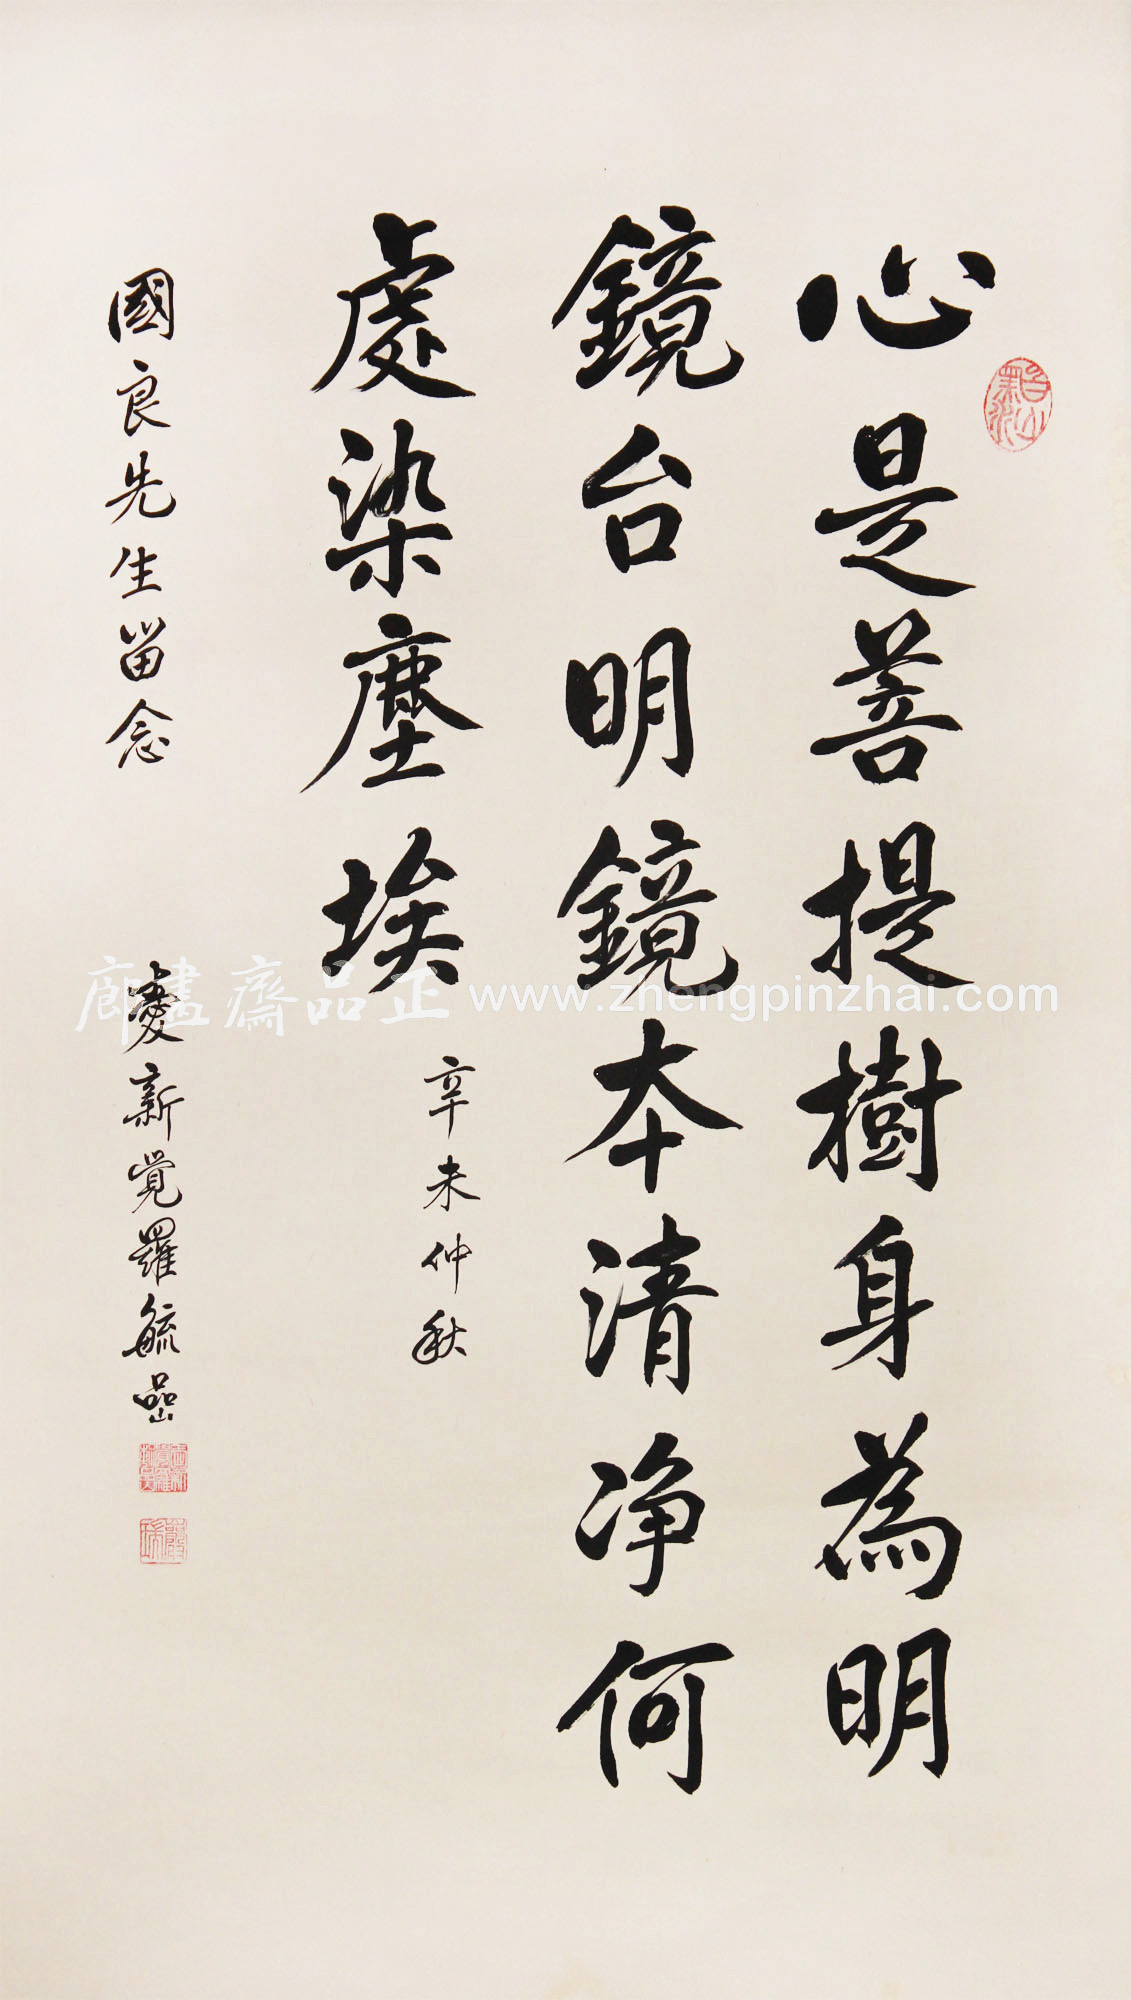 心是菩提樹身為明
鏡台明鏡本清净何
處染塵埃
辛未仲秋
國良先生留念
愛新覺羅毓嵒
正品齋畫廊 www.zhengpinzhai.com